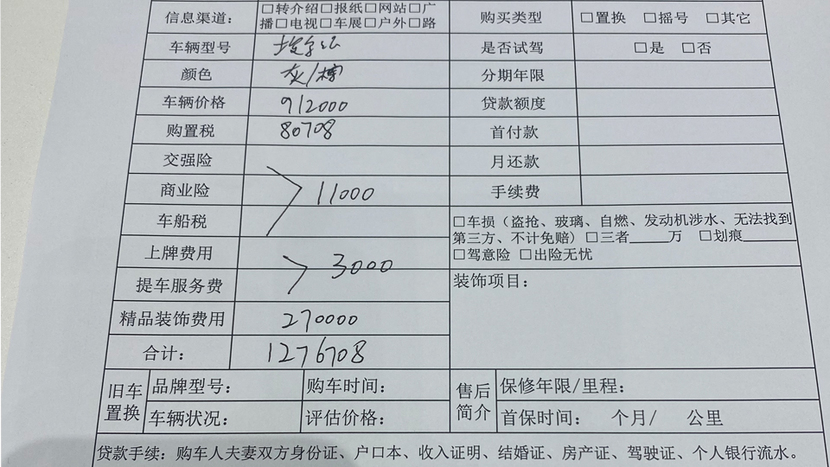 信息渠道： □转介绍□报纸□网站□广 购买类型 □置换 □摇号 □其它
播□电视□车展□户外□路
车辆型号 埃尔法 是否试驾 □是 □否
颜色 灰/棕 分期年限
车辆价格 912000 贷款额度
购置税 80708 首付款
交强险 月还款
商业险 11000 手续费
车船税 □车损（盗抢、玻璃、自燃、发动机涉水、无法找到
第三方、不计免赔）□三者_____万 □划痕______
上牌费用 3000 □驾意险 □出险无忧
提车服务费 装饰项目：
精品装饰费用 270000
合计： 1276708
旧车置换 品牌型号： 购车时间： 售后简介 保修年限/里程：
车辆状况： 评估价格： 首保时间： 个月/ 公里
贷款手续：购车人夫妻双方身份证、户口本、收入证明、结婚证、房产证、驾驶证、个人银行流水。